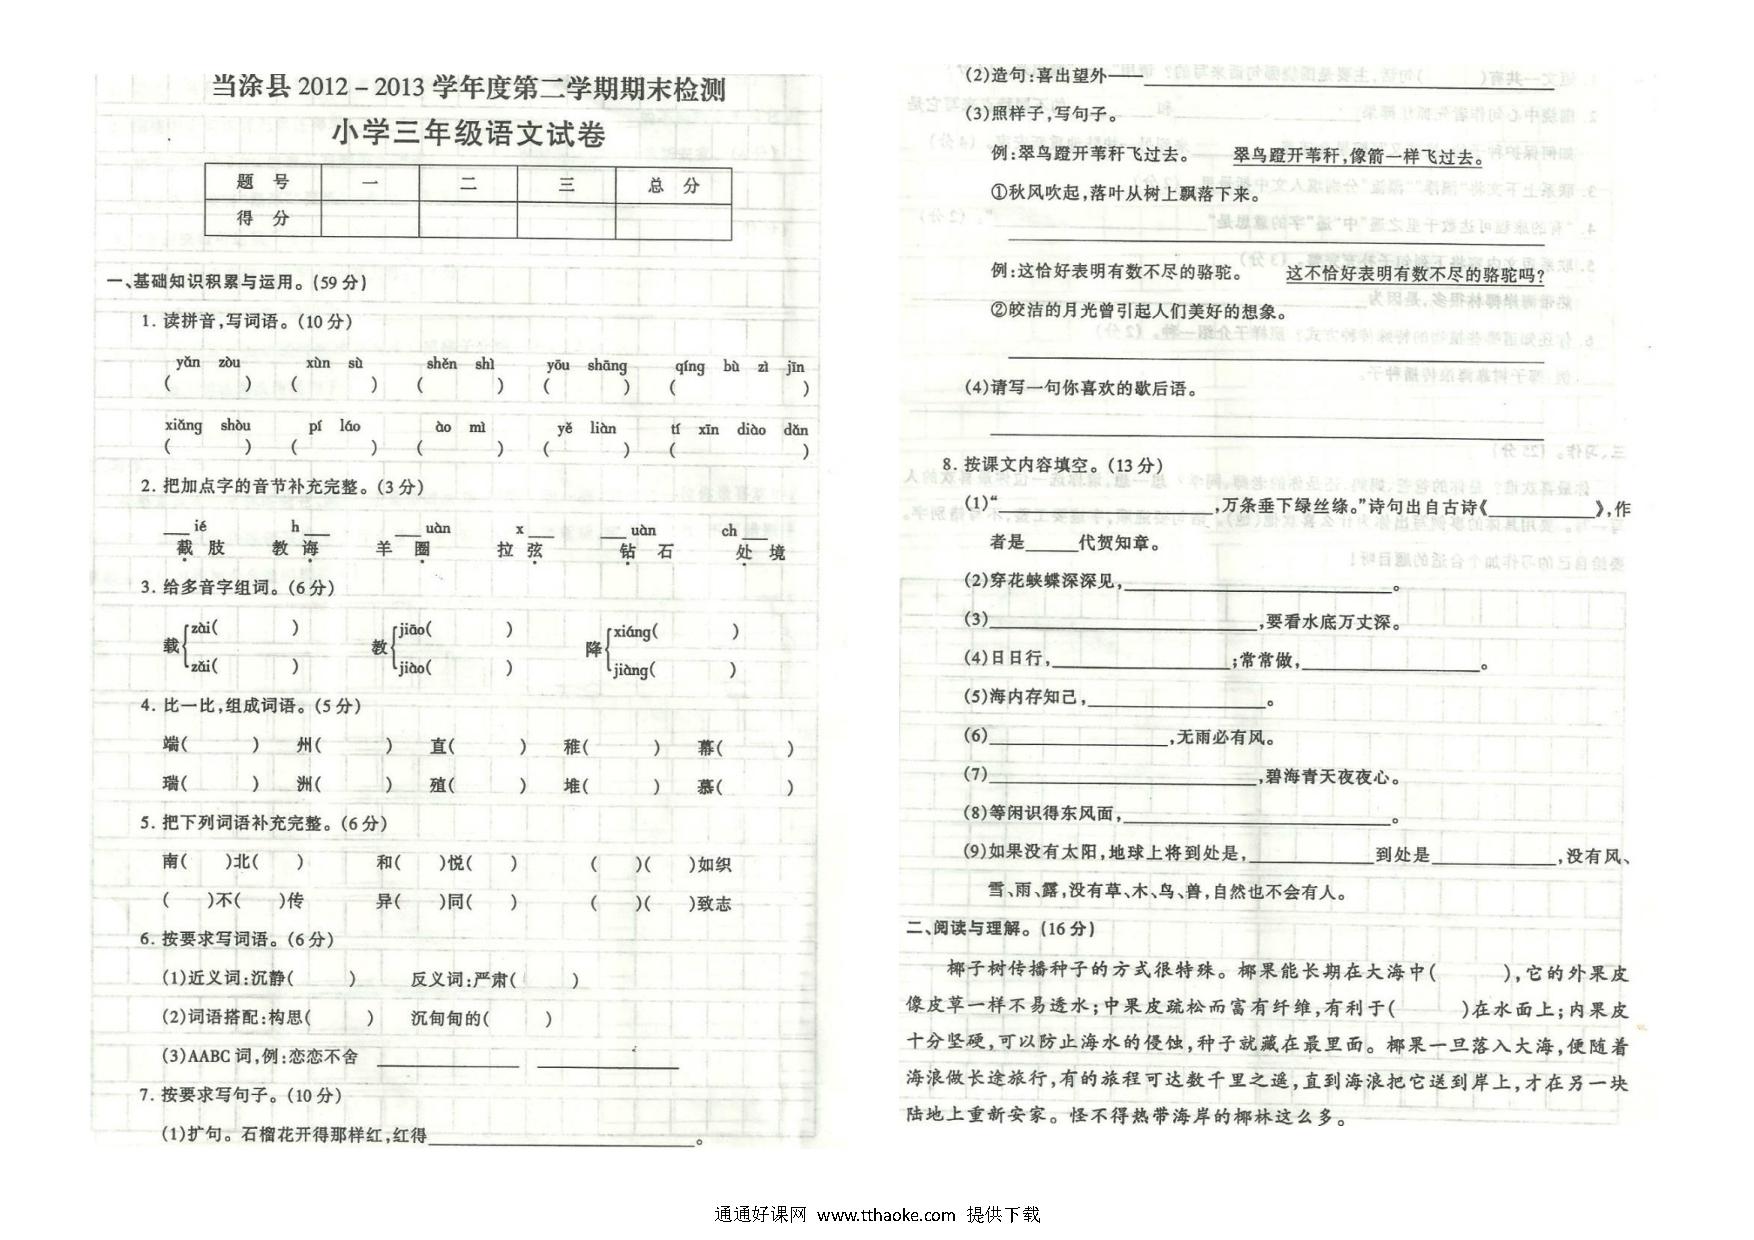 当涂县2012-2013学年度第二学期期末检测
小学三年级语文试卷
题 号 一 二 三 总 分
得 分
一、基础知识积累与运用。(59分)
1. 读拼音,写词语。(10分)
yǎn zòu xùn sù shěn shì yōu shāng qíng bù zì jīn
( ) ( ) ( ) ( ) ( )
xiǎng shòu pí láo ào mì yě liàn tí xīn diào dǎn
( ) ( ) ( ) ( ) ( )
2. 把加点字的音节补充完整。(3分)
___ié h___ ___uàn x___ ___uàn ch___
截 肢 教 诲 羊 圈 拉 弦 钻 石 处 境
3. 给多音字组词。(6分)
zài( ) jiāo( ) xiáng( )
载 教 降
zǎi( ) jiào( ) jiàng( )
4. 比一比,组成词语。(5分)
端( ) 州( ) 直( ) 稚( ) 幕( )
瑞( ) 洲( ) 殖( ) 堆( ) 慕( )
5. 把下列词语补充完整。(6分)
南( )北( ) 和( )悦( ) ( )( )如织
( )不( )传 异( )同( ) ( )( )致志
6. 按要求写词语。(6分)
(1)近义词:沉静( ) 反义词:严肃( )
(2)词语搭配:构思( ) 沉甸甸的( )
(3)AABC词,例:恋恋不舍 __________ __________
7. 按要求写句子。(10分)
(1)扩句。石榴花开得那样红,红得____________________。
(2)造句:喜出望外——______________________________
(3)照样子,写句子。
例:翠鸟蹬开苇秆飞过去。 翠鸟蹬开苇秆,像箭一样飞过去。
①秋风吹起,落叶从树上飘落下来。
例:这恰好表明有数不尽的骆驼。 这不恰好表明有数不尽的骆驼吗?
②皎洁的月光曾引起人们美好的想象。
(4)请写一句你喜欢的歇后语。
8. 按课文内容填空。(13分)
(1)“_______________,万条垂下绿丝绦。”诗句出自古诗《________》,作
者是____代贺知章。
(2)穿花蛱蝶深深见,____________________。
(3)____________________,要看水底万丈深。
(4)日日行,_____________;常常做,_____________。
(5)海内存知己,_____________。
(6)_____________,无雨必有风。
(7)____________________,碧海青天夜夜心。
(8)等闲识得东风面,____________________。
(9)如果没有太阳,地球上将到处是,_________到处是_________,没有风、
雪、雨、露,没有草、木、鸟、兽,自然也不会有人。
二、阅读与理解。(16分)
椰子树传播种子的方式很特殊。椰果能长期在大海中( ),它的外果皮
像皮草一样不易透水;中果皮疏松而富有纤维,有利于( )在水面上;内果皮
十分坚硬,可以防止海水的侵蚀,种子就藏在最里面。椰果一旦落入大海,便随着
海浪做长途旅行,有的旅程可达数千里之遥,直到海浪把它送到岸上,才在另一块
陆地上重新安家。怪不得热带海岸的椰林这么多。
通通好课网 www.tthaoke.com 提供下载